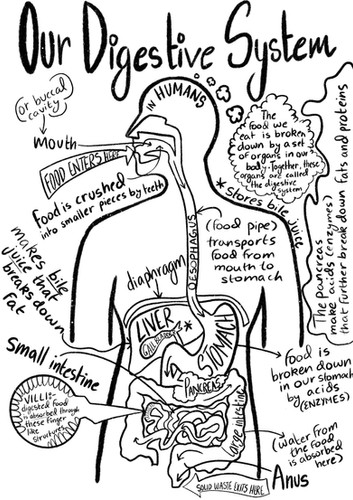 Our Digestive System
IN HUMANS
(or buccal
cavity)
mouth
FOOD ENTERS HERE
Food is crushed
into smaller pieces by teeth
The
food we
eat is broken
down by a set
of organs in our
body. Together, these
organs are called
the digestive
system
*stores bile juice
The pancreas
make acids (enzymes)
that further break down fats and proteins
OESOPHAGUS
(food pipe)
transports
food from
mouth to
stomach
makes bile
juice that
breaks down
fat
diaphragm
LIVER
GALLBLADDER
*
STOMACH
PANCREAS
food is
broken down
in our stomach
by acids
(ENZYMES)
Small intestine
VILLI:-
digested food
is absorbed through
these finger
like
structures
Large intestine
(water from
the food
is absorbed
here)
Anus
SOLID WASTE EXITS HERE